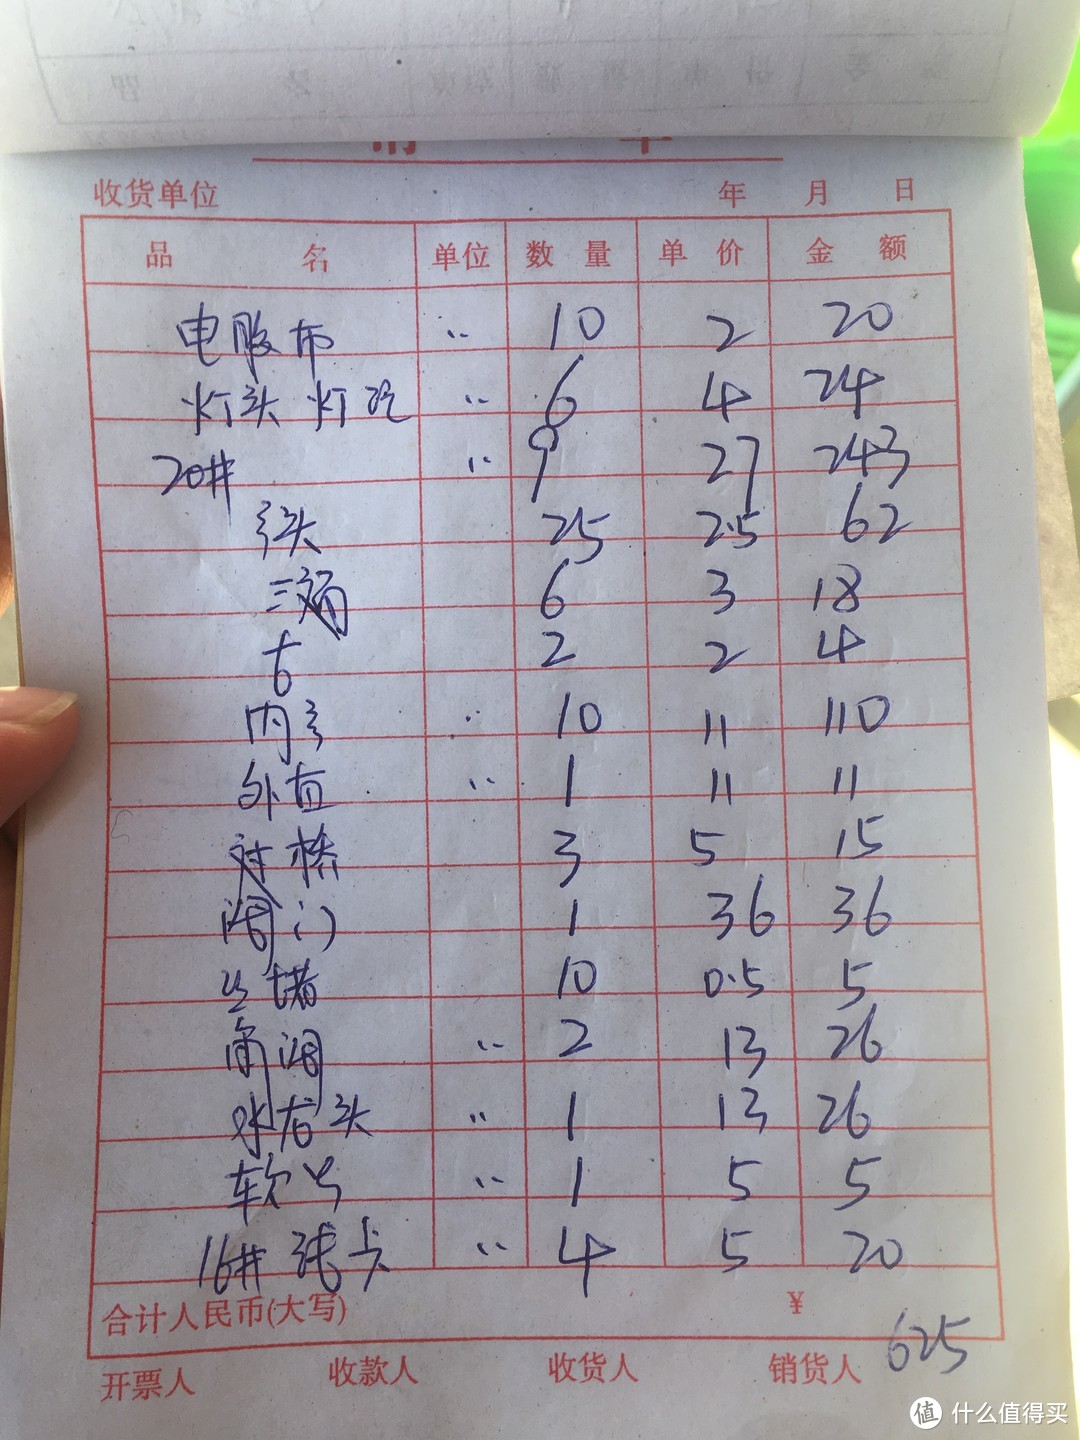 收货单位 年 月 日
品 名 单位 数 量 单 价 金 额
电胶布 〃 10 2 20
灯头 灯泡 〃 6 4 24
20# 〃 9 27 243
弯头 25 2.5 62
三通 6 3 18
古 2 2 4
内弯 〃 10 11 110
外直 〃 1 11 11
对接 3 5 15
阀门 1 36 36
丝堵 10 0.5 5
角阀 〃 2 13 26
水龙头 〃 1 13 26
软 〃 1 5 5
16# 卡 〃 4 5 20
合计人民币(大写) ¥
625
开票人 收款人 收货人 销货人
值 什么值得买